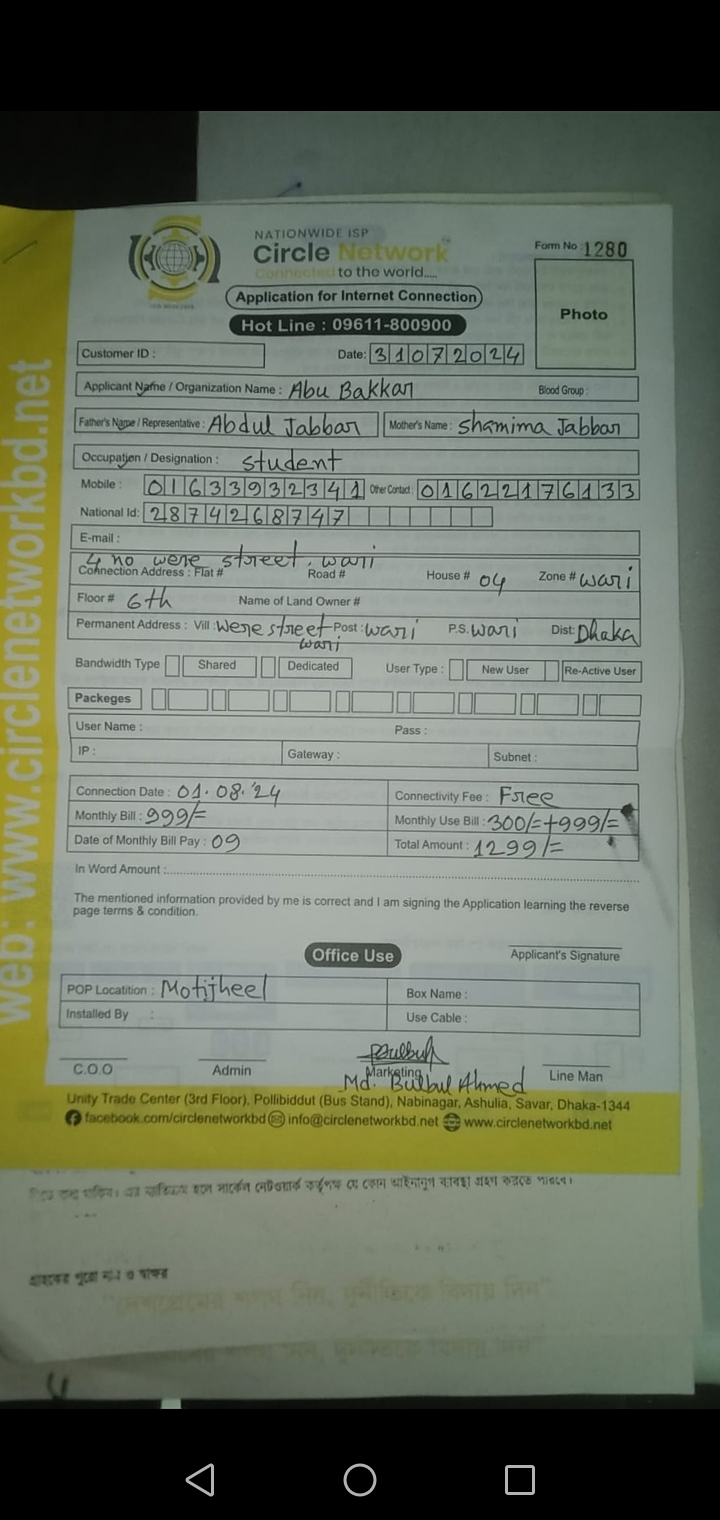 NATIONWIDE ISP
Circle Network
Connected to the world.....
Form No 1280
Application for Internet Connection
Hot Line : 09611-800900
Photo
Customer ID :
Date: 31072024
Applicant Name / Organization Name : Abu Bakkar Blood Group :
Father's Name / Representative : Abdul Jabbar Mother's Name : Shamima Jabbar
Occupation / Designation : Student
Mobile : 01633932341 Other Contact : 01622176133
National Id: 2874268747
E-mail :
4 no were street, wari
Connection Address : Flat # Road # House # 04 Zone # wari
Floor # 6th Name of Land Owner #
Permanent Address : Vill : were street wari Post : wari P.S. wari Dist: Dhaka
Bandwidth Type Shared Dedicated User Type : New User Re-Active User
Packeges
User Name : Pass :
IP : Gateway : Subnet :
Connection Date : 01.08.'24 Connectivity Fee : Free
Monthly Bill : 999/= Monthly Use Bill : 300/=+999/=
Date of Monthly Bill Pay : 09 Total Amount : 1299/=
In Word Amount :
The mentioned information provided by me is correct and I am signing the Application learning the reverse
page terms & condition.
Office Use
Applicant's Signature
POP Locatition : Motijheel Box Name :
Installed By : Use Cable :
C.O.O Admin Marketing Line Man
Md. Bulbul Ahmed
Unity Trade Center (3rd Floor), Pollibiddut (Bus Stand), Nabinagar, Ashulia, Savar, Dhaka-1344
facebook.com/circlenetworkbd info@circlenetworkbd.net www.circlenetworkbd.net
web: www.circlenetworkbd.net
হলে সার্কেল নেটওয়ার্ক কর্তৃপক্ষ যে কোন আইনানুগ ব্যবস্থা গ্রহণ করতে পারবে।
গ্রাহকের পুরো নাম ও স্বাক্ষর